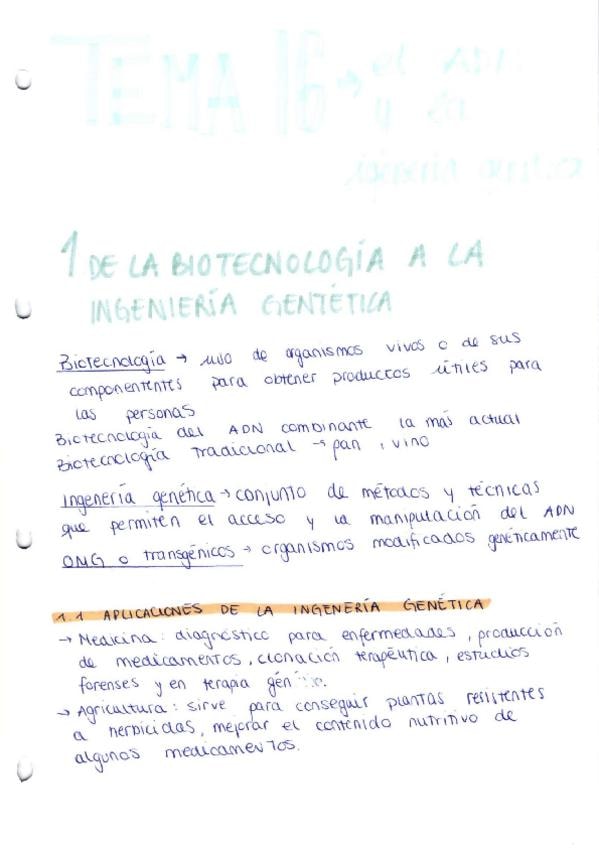 TEMA 16 → el ADN
y la
1 DE LA BIOTECNOLOGÍA A LA
INGENIERÍA GENTÉTICA
Biotecnología → uso de organismos vivos o de sus
componententes para obtener productos útiles para
las personas
Biotecnología del ADN combinante la más actual
Biotecnología tradicional → pan, vino
Ingenería genética → conjunto de métodos y técnicas
que permiten el acceso y la manipulación del ADN
OMG o transgénicos → organismos modificados genéticamente
1.1 APLICACIONES DE LA INGENERÍA GENÉTICA
→ Medicina: diagnóstico para enfermedades, producción
de medicamentos, clonación terapéutica, estudios
forenses y en terapia
→ Agricultura: sirve para conseguir plantas resistentes
a herbicidas, mejorar el contenido nutritivo de
algunos medicamentos.